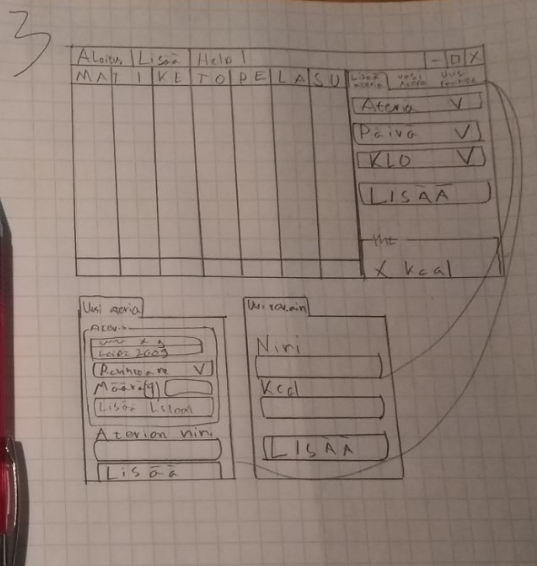 3
Aloitus Lisää Help!
- □ X
MA TI KE TO PE LA SU
Lisää ateria
Uusi ateria
Ateria V
Päivä V
KLO V
LISÄÄ
X kcal
Uusi ateria
Ateria
Leipä 200g
Ravintoaine V
Määrä(g)
Lisää listaan
Aterian nimi
Lisää
Uusi ravain
Nimi
Kcal
LISÄÄ